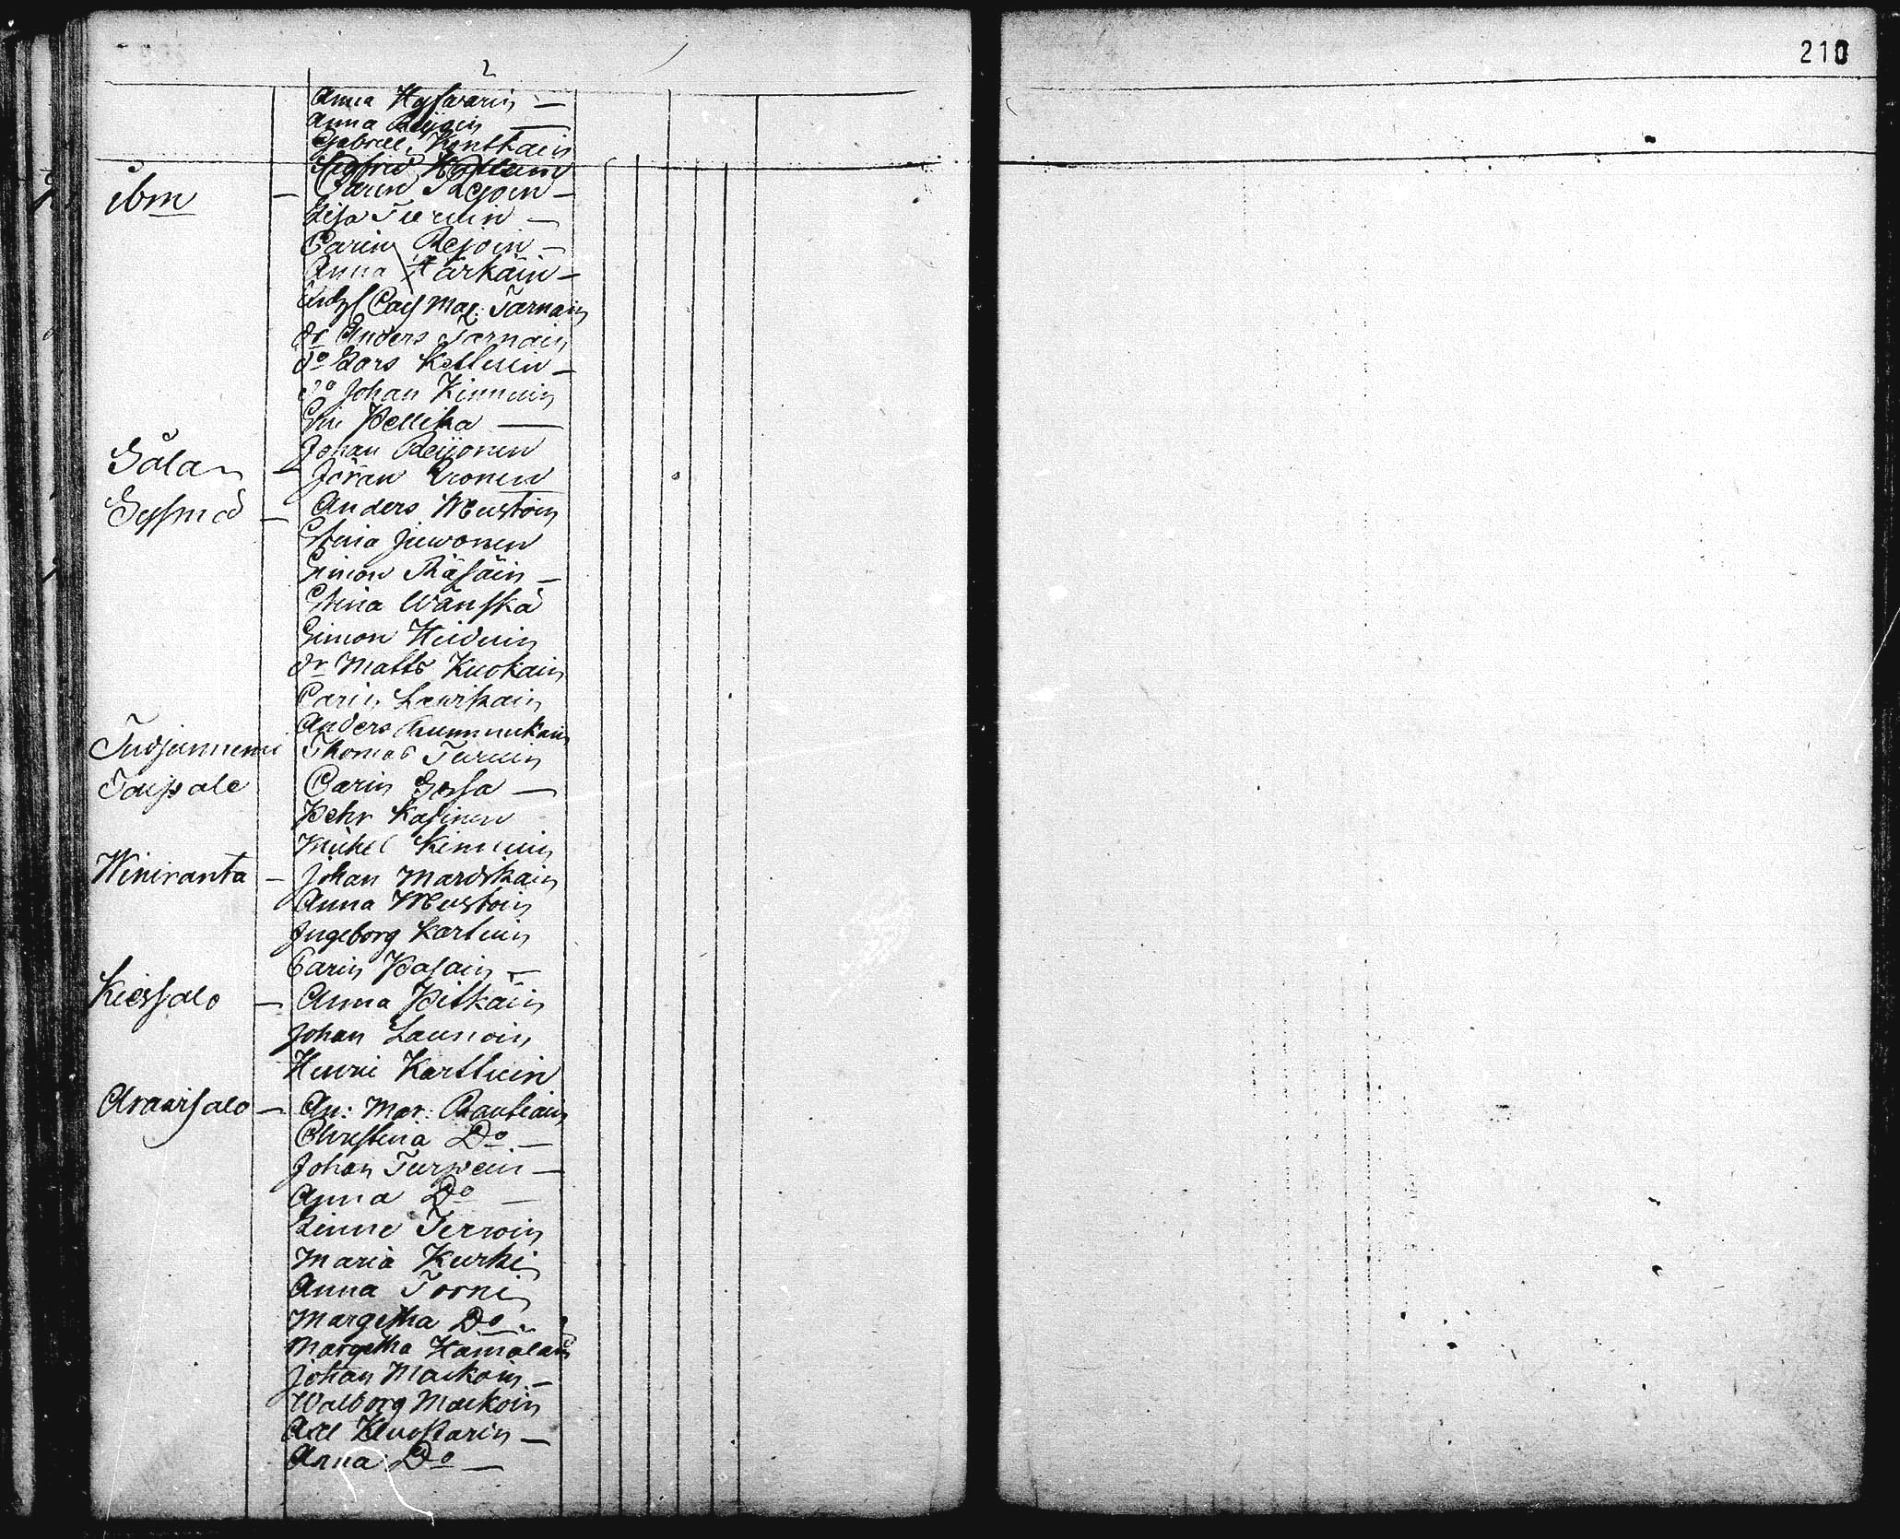 210
2
Anna Hyfvärin —
Anna Reijoin —
Gabriel Kontkain
Sigfrid
ibm — Carin Rejoin —
Lisa Turuin —
Carin Rejoin —
Anna Härkäin —
Carl Mag: Tarnain
dr Anders Tarnain
do Lars Kettuin —
do Johan Kinnuin
Pellika —
Johan Reijonen
Sålan — Jöran Ronen
Sysmä — Anders Mustoin
Stina Juwonen
Simon Räsäin —
Stina Wänskä
Simon Huiduin
dr Matts Kuokain
Carin Lawikain
Anders Hummukain
Tuojinniemi Thomas Turuin
Taipale Carin Sorsa —
Pehr Kasinen
Michel Kinnuin
Winiranta — Johan Mardikain
Anna Mustoin
Ingeborg Kartuin
Carin Pasain —
Kiessalo — Anna Pitkäin
Johan Launoin
Henric Karttuin
Arawisalo — An: Mar: Rautiain
Christina Do —
Johan Turpein —
Anna Do —
Linne Terwoin
Maria Kurki
Anna Torni
Margetha Do
Margetha Hämäläin
Johan Maukoin —
Walborg Maukoin
Axel —
Anna Do —